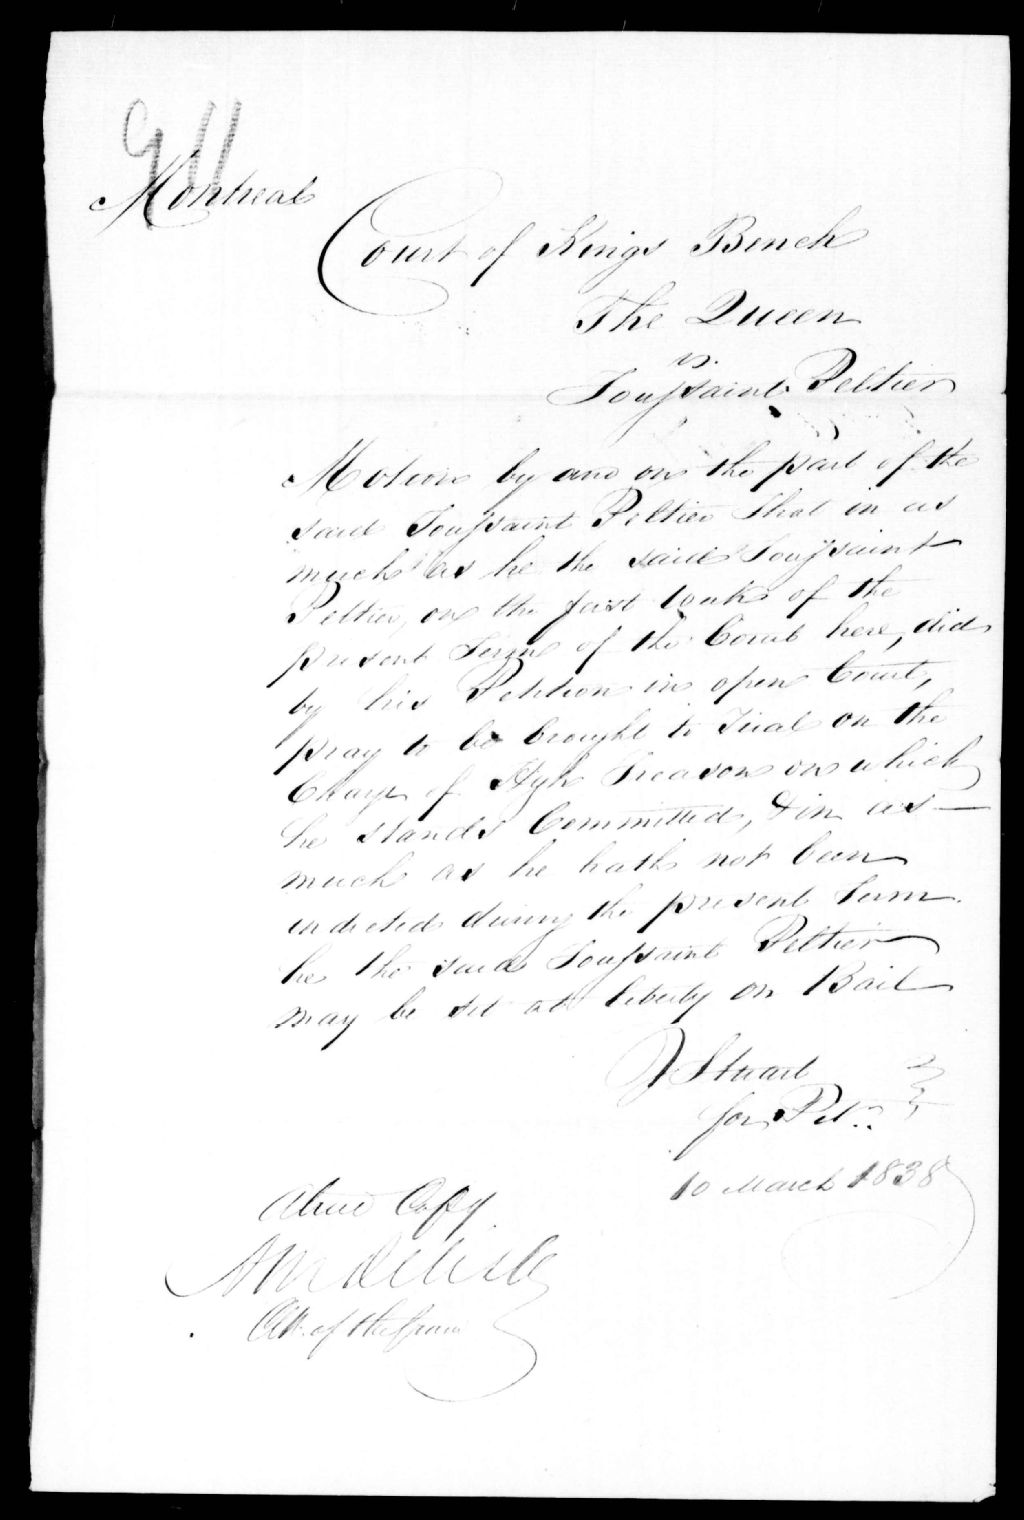 911
Montreal
Court of Kings Bench
The Queen
vs.
Toussaint Peltier
Motion by and on the part of the
said Toussaint Peltier that in as
much as he the said Toussaint
Peltier, on the first week of the
present Term of the Court here, did
by his Petition in open Court,
pray to be brought to Trial on the
Charge of High Treason on which
he stands Committed, & in as
much as he hath not been
indicted during the present Term
he the said Toussaint Peltier
may be set at liberty on Bail
J Stuart
for Petr.
10 March 1838
A true Copy
A M Delisle
Clk. of the Crown